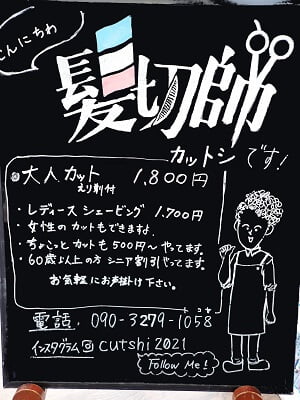 こんにちわ
髪切師
カットシです!
大人カット 1,800円
えり剃付
・レディースシェービング 1,700円
・女性のカットもできますよ.
・ちょこっとカットも500円〜やってます.
・60歳以上の方 シニア割引やってます.
お気軽にお声掛け下さい。
トコヤ
電話. 090-3279-1058
インスタグラム@cutshi2021
Follow Me!